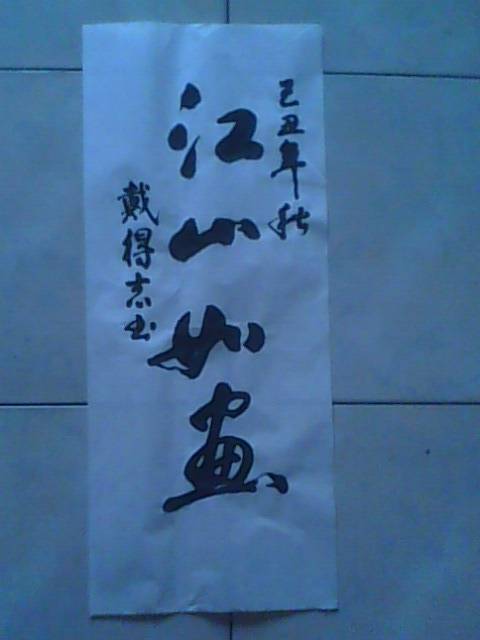 己丑年秋
江山如画
戴得志书